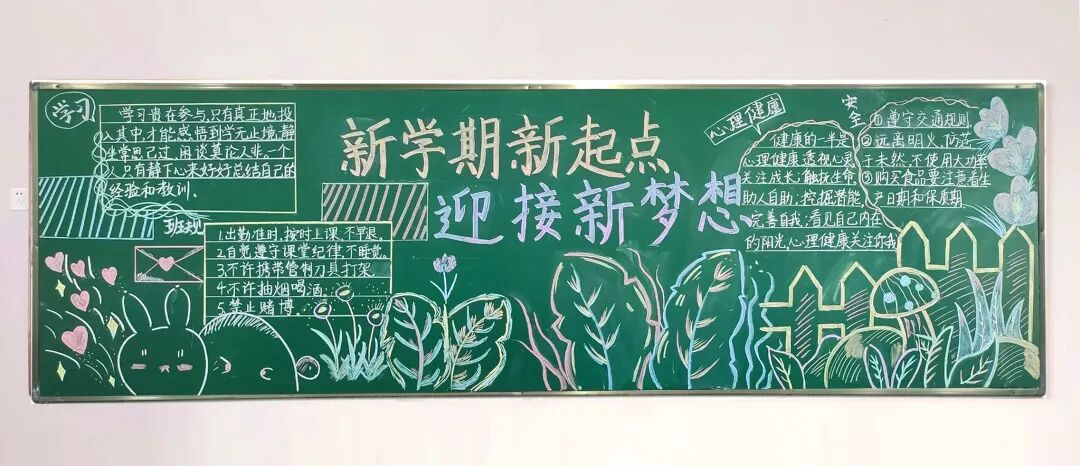 学习
学习贵在参与,只有真正地投
入其中才能感悟到学无止境,静
坐常思己过,闲谈莫论人非,一个
人只有静下心来好好总结自己的
经验和教训.
班规
1.出勤准时,按时上课,不早退
2.自觉遵守课堂纪律,不睡觉.
3.不许携带管制刀具打架
4.不许抽烟喝酒
5.禁止赌博
新学期新起点
迎接新梦想
心理健康
健康的一半是
心理健康透视心灵
关注成长;触抚生命
助人自助;挖掘潜能,
完善自我;看见自己内在
的阳光,心理健康关注你我
安全
①遵守交通规则
②远离明火,防范
于未然,不使用大功率
③购买食品要注意看生
产日期和保质期